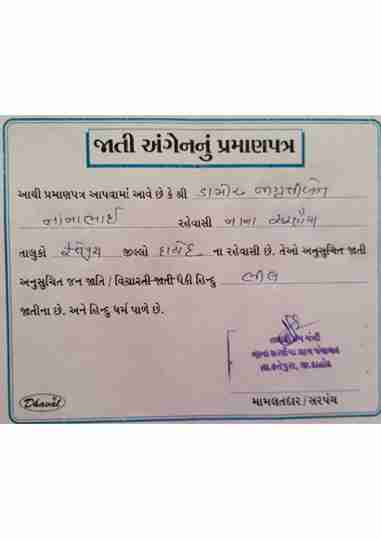 જાતી અંગેનનું પ્રમાણપત્ર
આથી પ્રમાણપત્ર આપવામાં આવે છે કે શ્રી ડામોર
નાનાભાઈ રહેવાસી નાના
તાલુકો જીલ્લો દાહોદ ના રહેવાસી છે. તેઓ અનુસુચિત જાતી
અનુસુચિત જન જાતિ / વિચારતી જાતી પૈકી હિન્દુ ભીલ
જાતીના છે. અને હિન્દુ ધર્મ પાળે છે.
તા.ફતેપુરા, જી.દાહોદ
મામલતદાર / સરપંચ
Dhaval